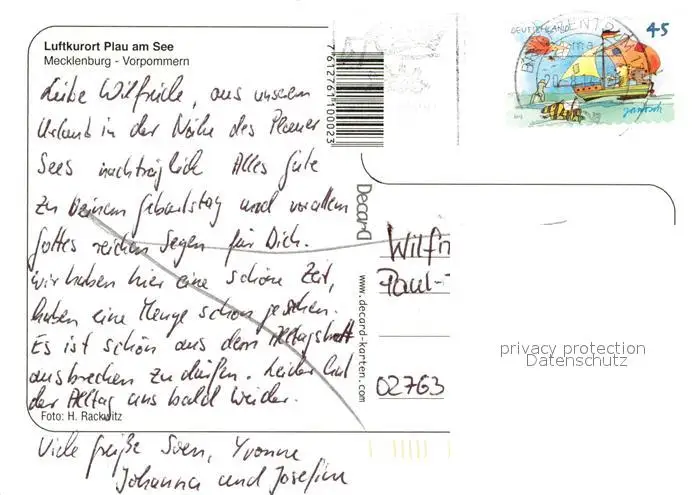 Luftkurort Plau am See
Mecklenburg - Vorpommern
Liebe Wilfriede, aus unserem
Urlaub in der Nähe des Plauer
Sees nachträglich Alles Gute
zu Deinem Geburtstag und vor allem
Gottes reichen Segen für Dich.
Wir haben hier eine schöne Zeit,
haben eine Menge schon gesehen.
Es ist schön aus dem Alltagstrott
ausbrechen zu dürfen. Leider hat
der Alltag uns bald wieder.
Foto: H. Rackwitz
Viele Grüße Sven, Yvonne
Johanna und Josefine
7612761100023
Decard
www.decard-karten.com
DEUTSCHLAND 45
janosch
Wilfr
Paul-
02763
privacy protection
Datenschutz